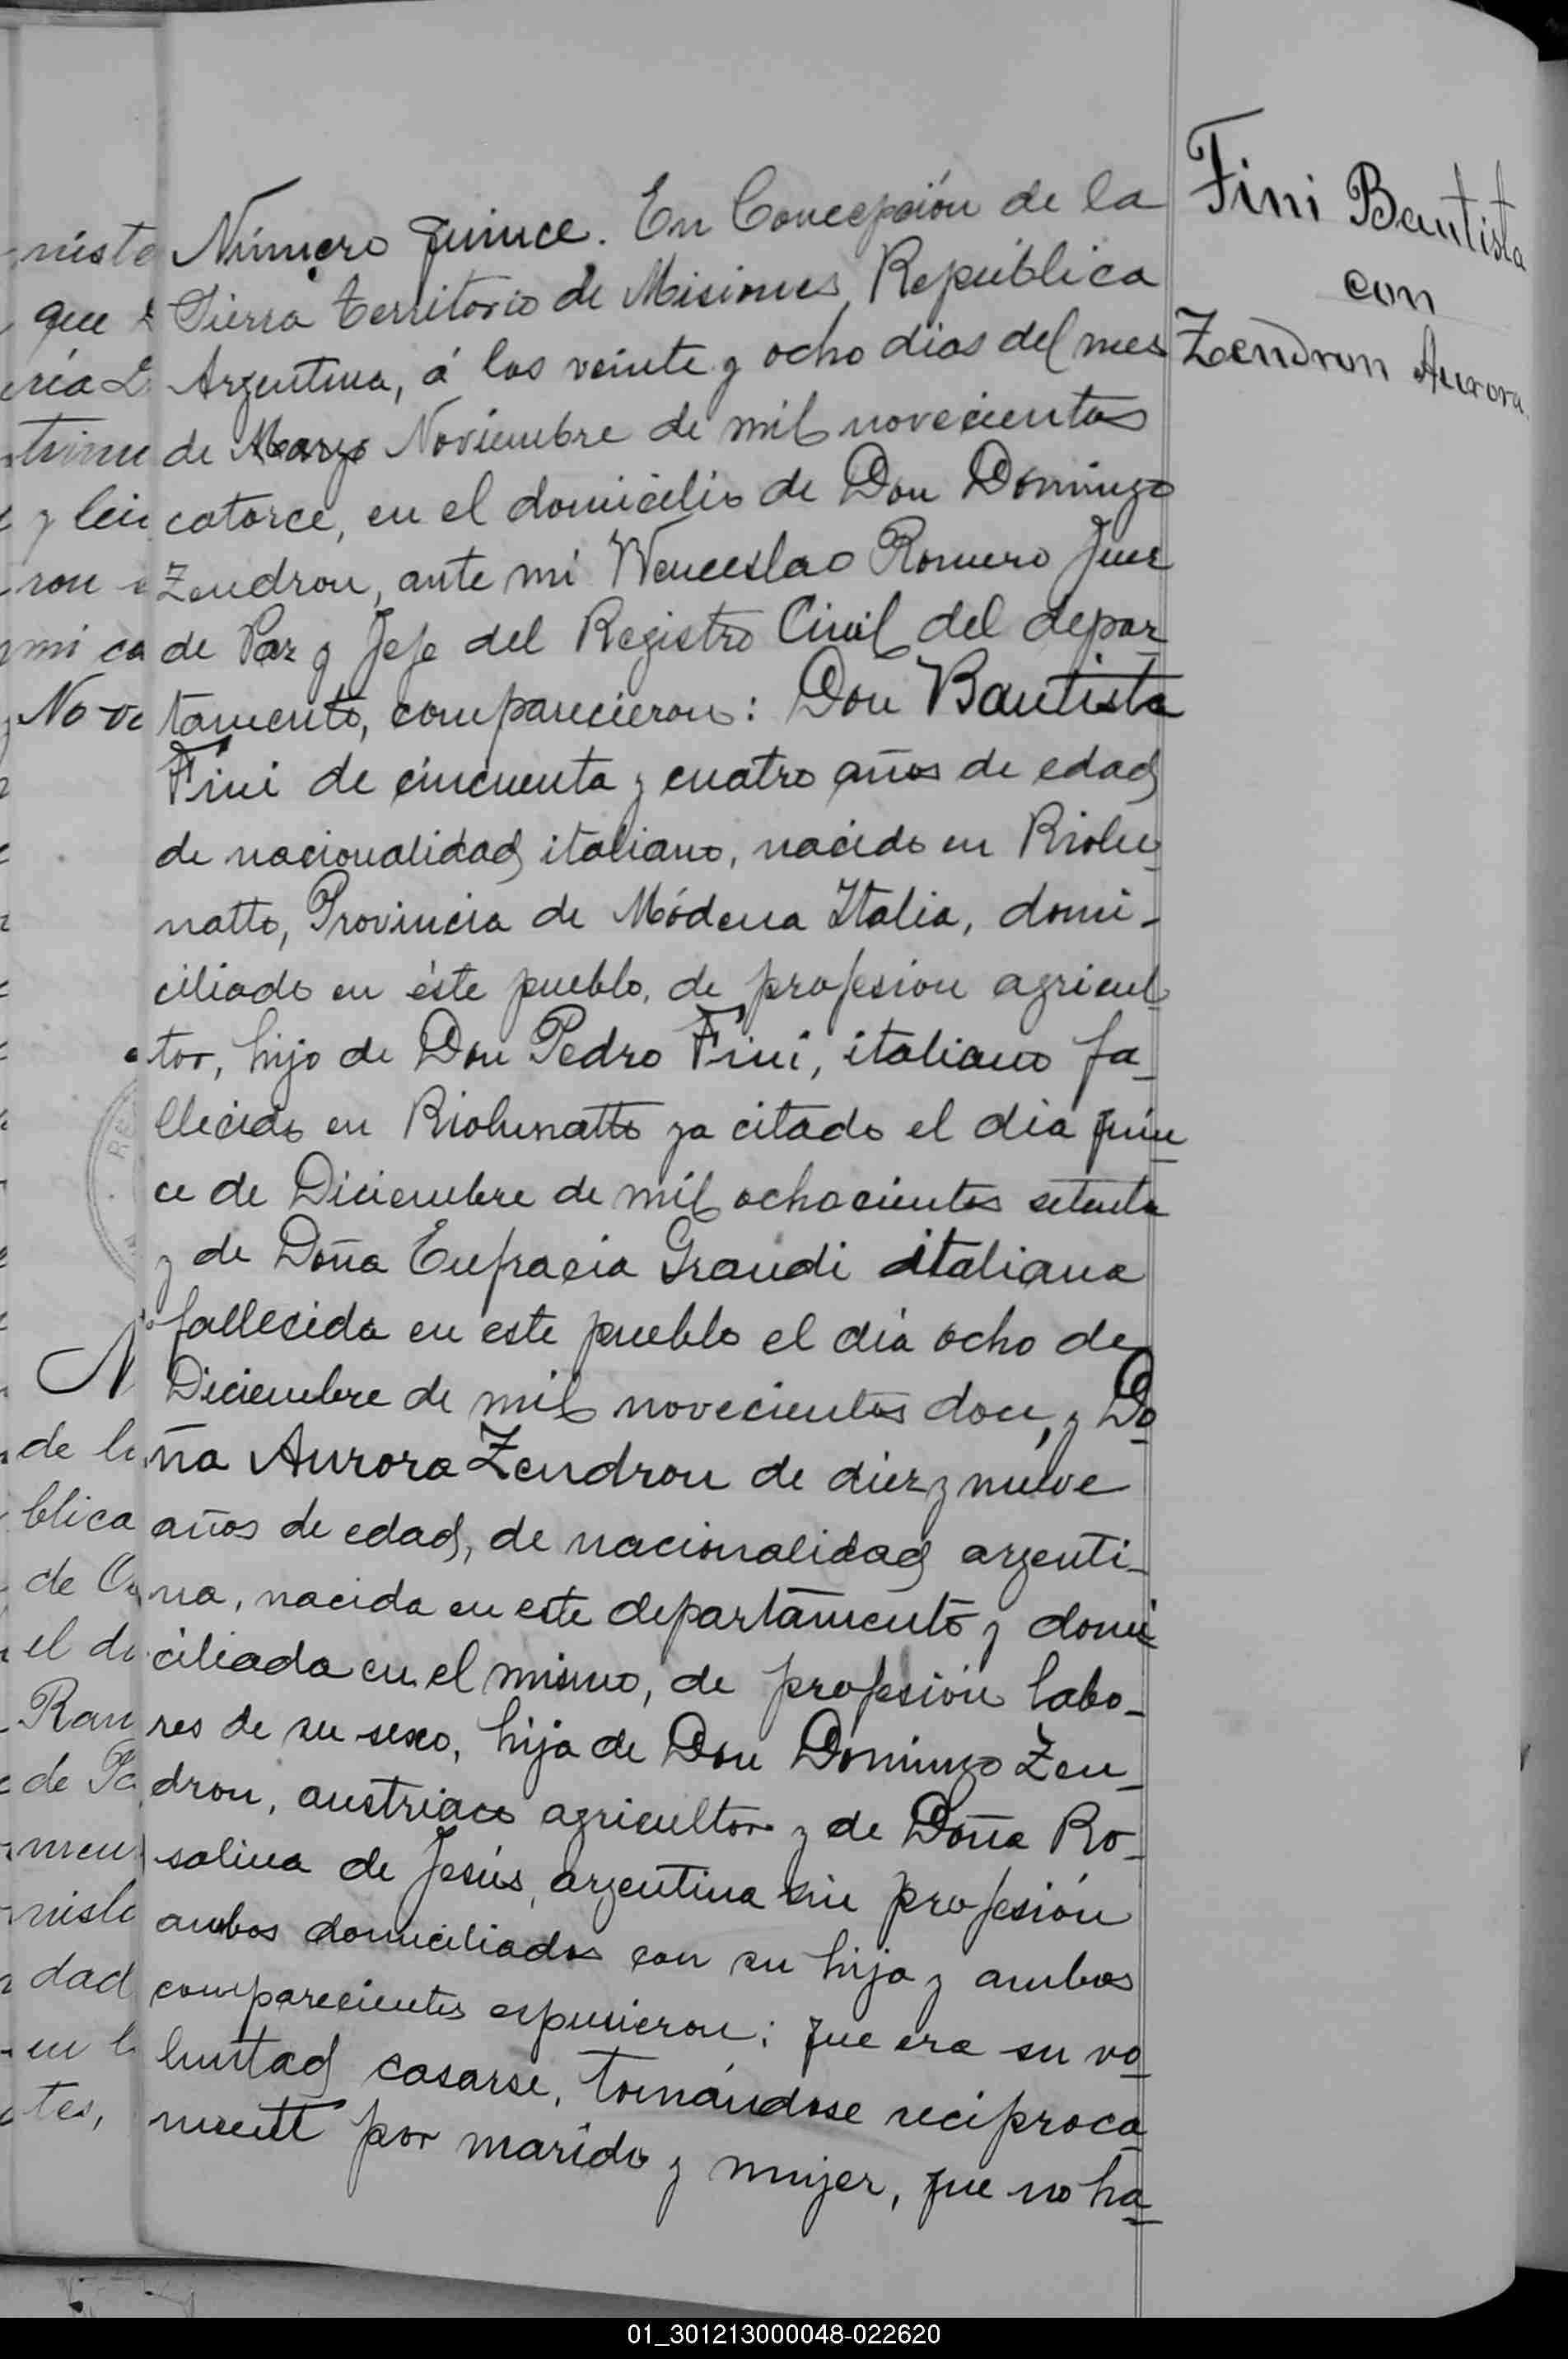 Fini Bautista
con
Zendron Aurora.
Número quince. En Concepción de la
Sierra territorio de Misiones, República
Argentina, á los veinte y ocho dias del mes
de Marzo Noviembre de mil novecientos
catorce, en el domicilio de Don Domingo
Zendron, ante mi Wenceslao Romero Juez
de Paz y Jefe del Registro Civil del depar-
tamento, comparecieron: Don Bautista
Fini de cincuenta y cuatro años de edad
de nacionalidad italiano, nacido en Riolu-
natto, Provincia de Módena Italia, domi-
ciliado en éste pueblo, de profesion agricul-
tor, hijo de Don Pedro Fini, italiano fa-
llecido en Riolunatto ya citado el dia quin-
ce de Diciembre de mil ochocientos setenta
y de Doña Eufracia Grandi italiana
fallecida en este pueblo el dia ocho de
Diciembre de mil novecientos doce, y Do-
ña Aurora Zendron de diez y nueve
años de edad, de nacionalidad argenti-
na, nacida en este departamento y domi-
ciliada en el mismo, de profesión labo-
res de su sexo, hija de Don Domingo Zen-
dron, austriaco agricultor y de Doña Ro-
salina de Jesús, argentina sin profesión
ambos domiciliados con su hija y ambos
comparecientes espusieron: que era su vo-
luntad casarse, tomándose reciproca-
mente por marido y mujer, que no ha-
niste
que
ria
y
mi ca
No-ve
N
de la
blica
de
el di
Ram
de
dad
en l
tes,
01_301213000048-022620